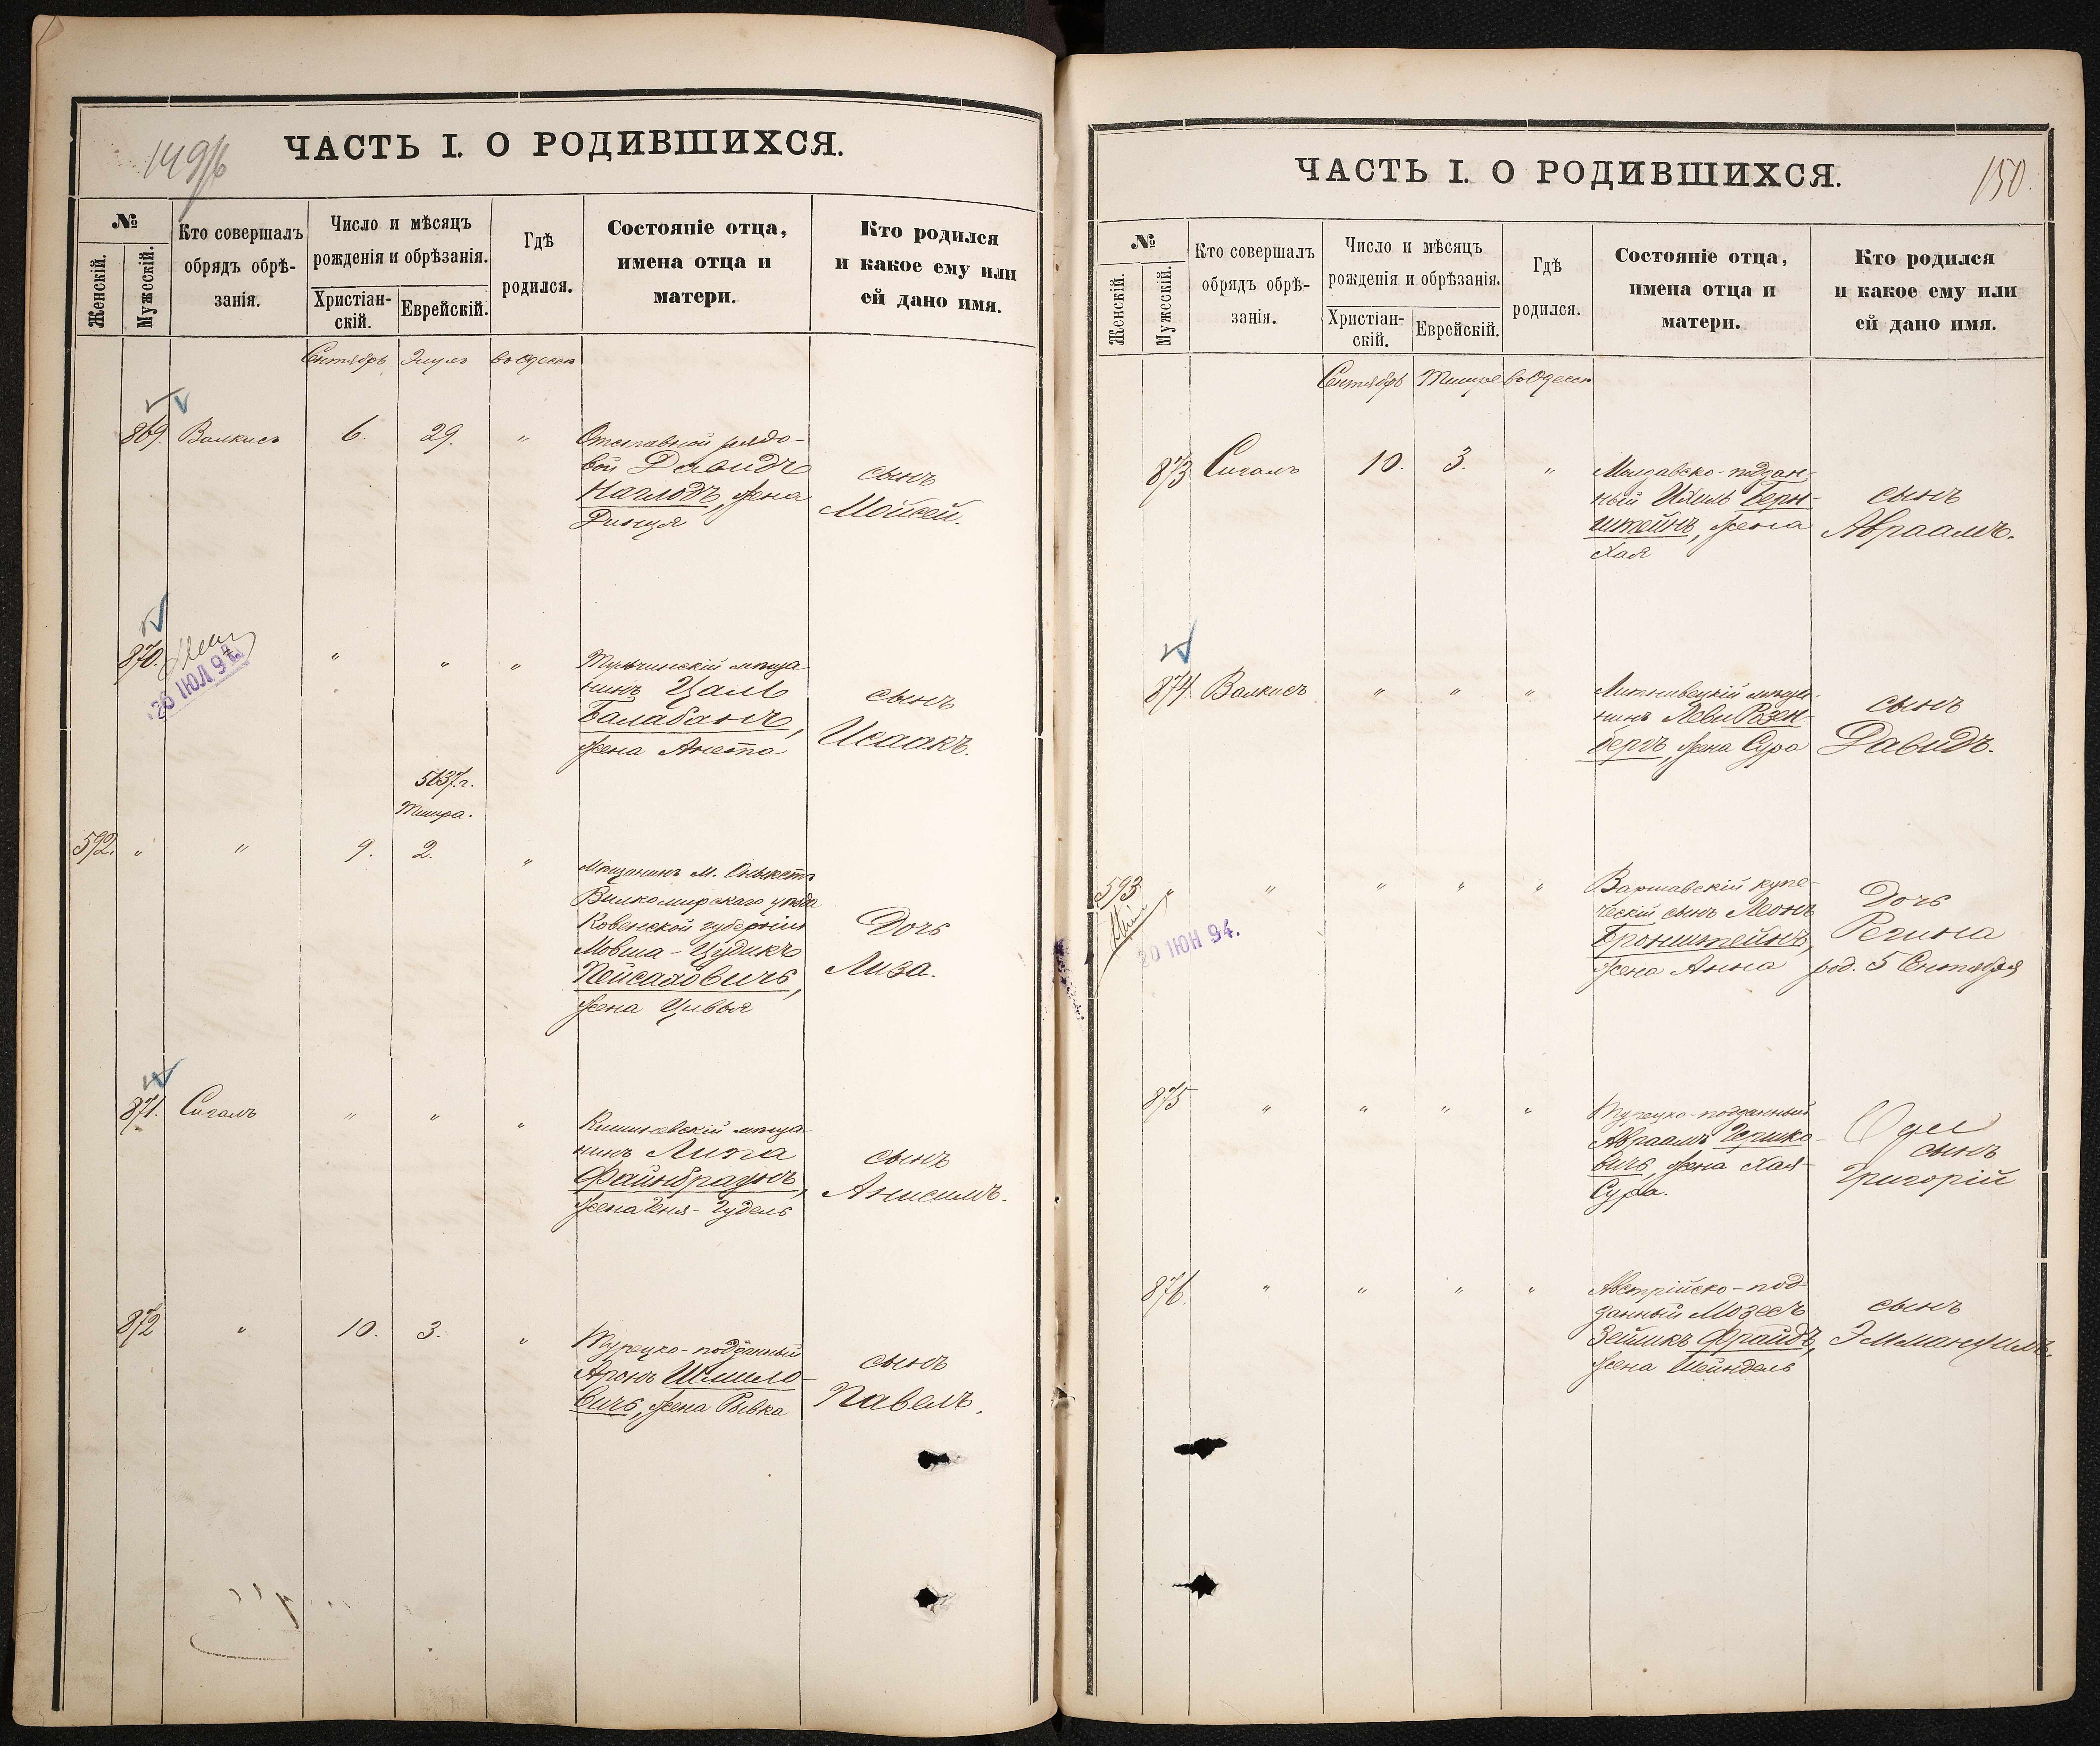 ЧАСТЬ I. О РОДИВШИХСЯ.
№
Женскій.
Мужескій.
Кто совершалъ
обрядъ обрѣ-
занія.
Число и мѣсяцъ
рожденія и обрѣзанія.
Христіан-
скій.
Еврейскій.
Гдѣ
родился.
Состояніе отца,
имена отца и
матери.
Кто родился
и какое ему или
ей дано имя.
Сентябрь Элулъ въ Одессѣ
869. Валкисъ 6. 29. "
Отставной рядо-
вой Давидъ
Наглодъ, жена
Динця
сынъ
Мойсей.
870. " " "
26 ІЮЛ 9
Тульчинскій мѣща-
нинъ Цаль
Балабанъ,
жена Анета
сынъ
Исаакъ.
5637 г.
Тишра.
592. " " 9. 2. "
Мѣщанинъ М. Оныкшты
Вилкомирскаго уѣзда
Ковенской губерніи
Мовша-Иудикъ
Пейсаховичъ,
жена Цивья
Дочь
Лиза.
871. Сигалъ " " "
Кишиневскій мѣща-
нинъ Липа
Файнбраунъ,
жена Еня-Гудель
сынъ
Анисимъ.
872 " 10. 3. "
Турецко-подданный
Аронъ Шмило-
вичъ, жена Рывка
сынъ
Павелъ.
ЧАСТЬ I. О РОДИВШИХСЯ.
150.
№
Женскій.
Мужескій.
Кто совершалъ
обрядъ обрѣ-
занія.
Число и мѣсяцъ
рожденія и обрѣзанія.
Христіан-
скій.
Еврейскій.
Гдѣ
родился.
Состояніе отца,
имена отца и
матери.
Кто родился
и какое ему или
ей дано имя.
Сентябрь Тишре въ Одессѣ
873 Сигалъ 10. 3. "
Молдавско-поддан-
ный Ихиль Берн-
штейнъ, жена
Хая
сынъ
Авраамъ.
874. Валкисъ " " "
Литинвецкій мѣща-
нинъ Леви Розен-
бергъ, жена Сура
сынъ
Давидъ.
593 " " " " "
20 ІЮН 94.
Варшавскій купе-
ческій сынъ Леонъ
Бронштейнъ,
жена Анна
Дочь
Регина
род. 5 Сентября
875. " " " "
Турецко-подданный
Авраамъ Гершко-
вичъ, жена Хая-
Сура.
сынъ
Григорій
876. " " " "
Австрійско-под-
данный Мозесъ
Зейликъ Фрайдъ,
жена Шейндель
сынъ
Эммануилъ.